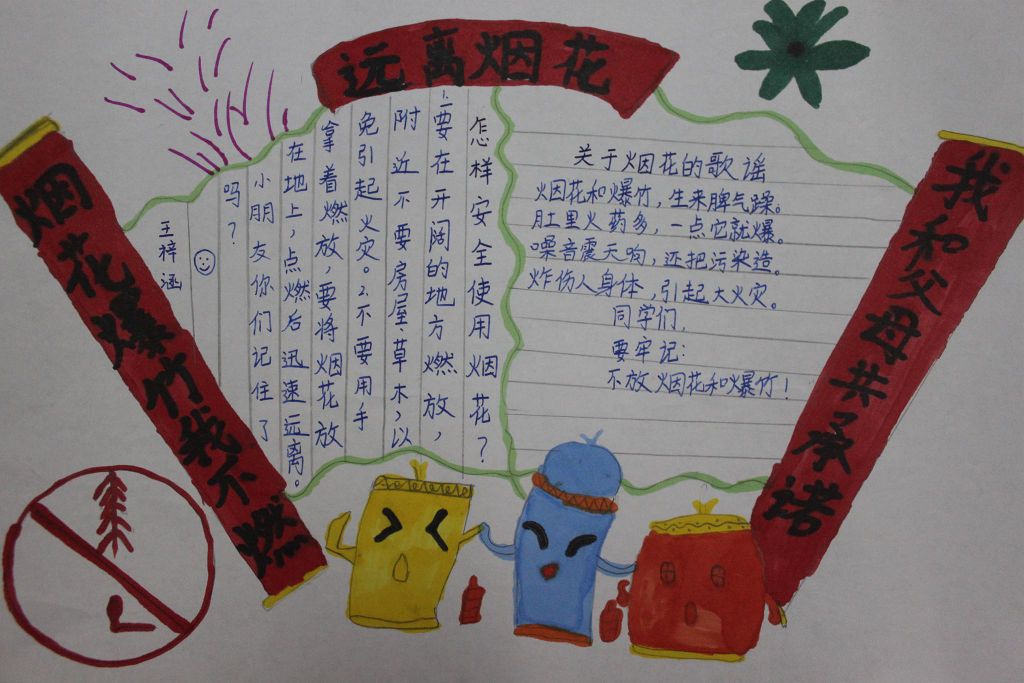 远离烟花
烟花爆竹我不燃
我和父母共承诺
怎样安全使用烟花？
1.要在开阔的地方燃放，
附近不要房屋、草木，以
免引起火灾。2.不要用手
拿着燃放，要将烟花放
在地上，点燃后迅速远离。
小朋友你们记住了
吗？
王梓涵
关于烟花的歌谣
烟花和爆竹，生来脾气躁。
肚里火药多，一点它就爆。
噪音震天响，还把污染造。
炸伤人身体，引起大火灾。
同学们，
要牢记：
不放烟花和爆竹！